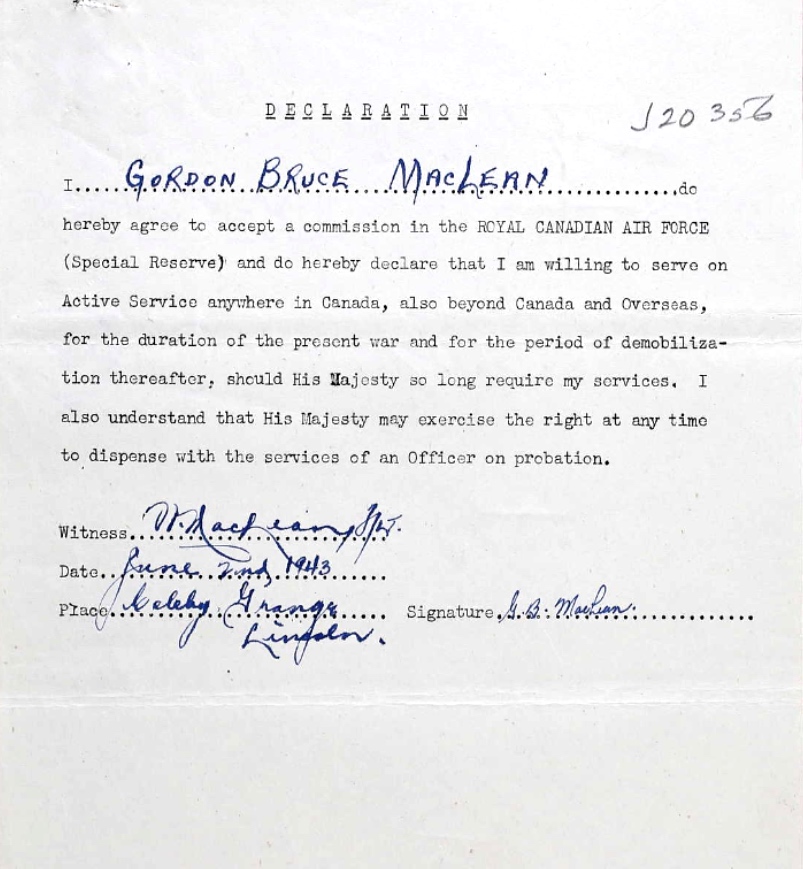 DECLARATION
J20356
I.....GORDON BRUCE MACLEAN.....do
hereby agree to accept a commission in the ROYAL CANADIAN AIR FORCE
(Special Reserve) and do hereby declare that I am willing to serve on
Active Service anywhere in Canada, also beyond Canada and Overseas,
for the duration of the present war and for the period of demobiliza-
tion thereafter, should His Majesty so long require my services. I
also understand that His Majesty may exercise the right at any time
to dispense with the services of an Officer on probation.
Witness..W. MacLean, F/Lt.
Date..June 2nd, 1943......
Place..Coleby Grange
Lincoln.
Signature.G.B. MacLean..............